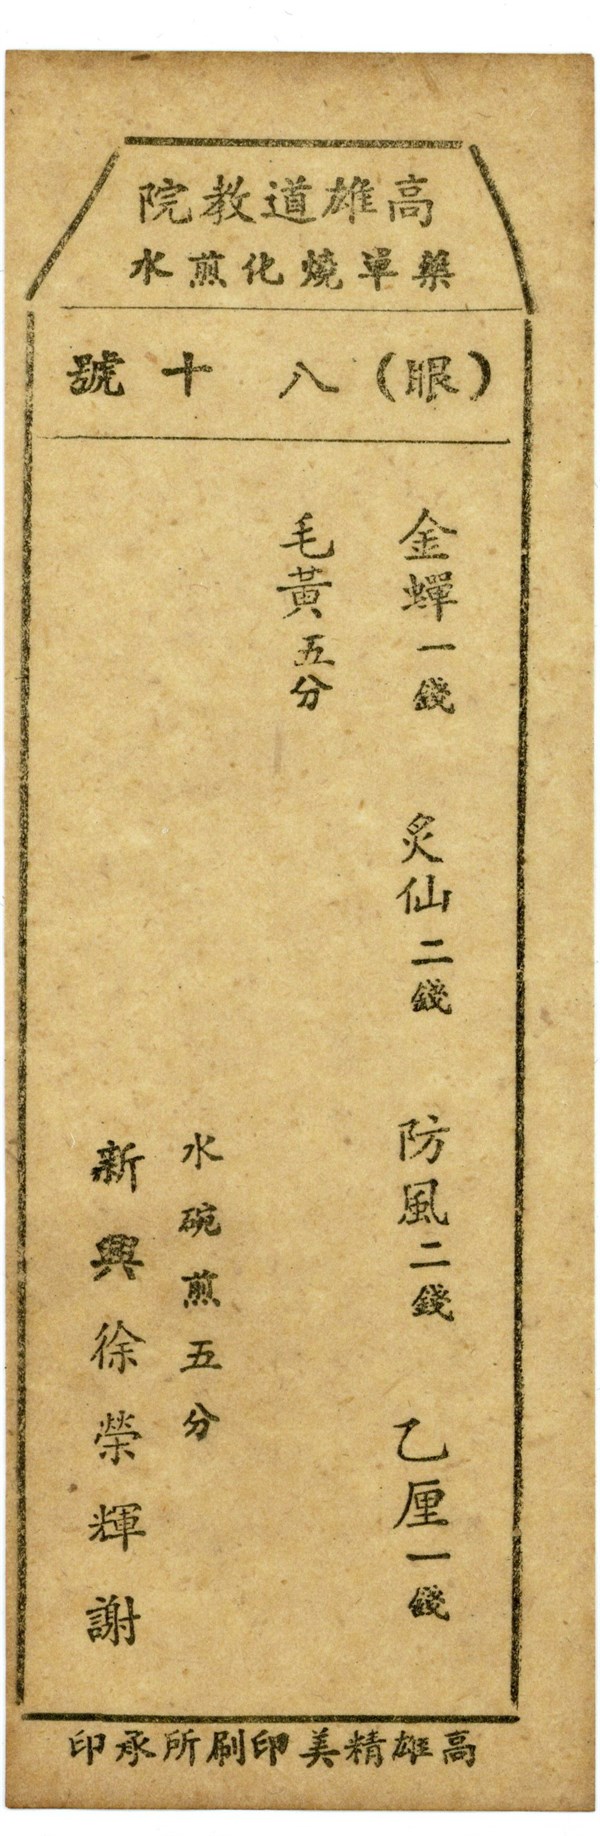 高雄道教院
藥單燒化煎水
（眼）八十號
金蟬一錢　炙仙二錢　防風二錢　乙厘一錢
毛黃五分
水碗煎五分
新興徐榮輝謝
高雄精美印刷所承印